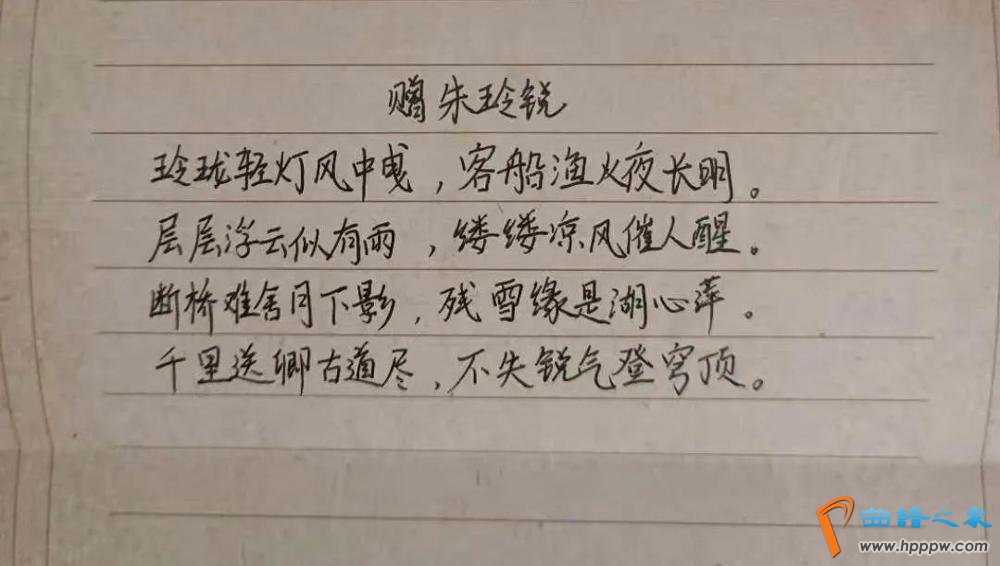 赠朱玲锐
玲珑轻灯风中曳，客船渔火夜长明。
层层浮云似有雨，缕缕凉风催人醒。
断桥难舍月下影，残雪缘是湖心萍。
千里送卿古道尽，不失锐气登穹顶。
曲谱之家
www.hpppw.com